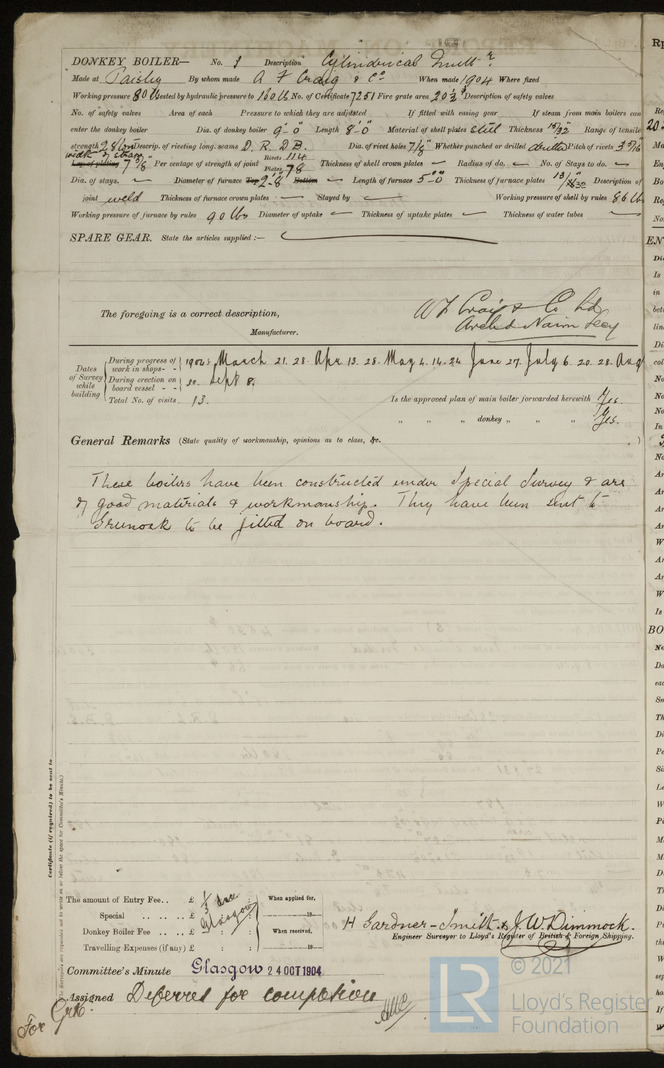 DONKEY BOILER— No. 1 Description Cylindrical Mult r
Made at Paisley By whom made A F Craig & Co When made 1904 Where fixed
Working pressure 80 lbs tested by hydraulic pressure to 160 lbs No. of Certificate 7251 Fire grate area 20½ Description of safety valves
No. of safety valves Area of each Pressure to which they are adjusted If fitted with easing gear If steam from main boilers can
enter the donkey boiler Dia. of donkey boiler 9'-0" Length 8'-0" Material of shell plates Steel Thickness 15/32 Range of tensile
strength 28 ton Descrip. of riveting long. seams D. R. D B. Dia. of rivet holes 7/8" Whether punched or drilled drilled Pitch of rivets 3 9/16
width of strap
Lap of plating 7 5/8" Per centage of strength of joint Rivets 114 Plates 78 Thickness of shell crown plates — Radius of do. — No. of Stays to do. —
Dia. of stays. — Diameter of furnace Top 2'-8" Bottom — Length of furnace 5'-0" Thickness of furnace plates 13/32 Description of
joint weld Thickness of furnace crown plates — Stayed by — Working pressure of shell by rules 86 lb
Working pressure of furnace by rules 90 lbs Diameter of uptake — Thickness of uptake plates — Thickness of water tubes —
SPARE GEAR. State the articles supplied:—
The foregoing is a correct description,
A F Craig & Co Ltd
Archd Nairn Secy
Manufacturer.
Dates of Survey while building
During progress of work in shops - - 1904: March 21. 28. Apr 13. 28. May 4. 14. 24 June 27. July 6. 20. 28. Aug
During erection on board vessel - - 20. Sept 8.
Total No. of visits 13.
Is the approved plan of main boiler forwarded herewith Yes.
" " donkey " " " Yes.
General Remarks (State quality of workmanship, opinions as to class, &c. )
These boilers have been constructed under Special Survey & are
of good materials & workmanship. They have been sent to
Greenock to be fitted on board.
Certificate (if required) to be sent to
The amount of Entry Fee . . £ When applied for,
Special . . . . £ 19
Donkey Boiler Fee . . £ When received,
Travelling Expenses (if any) £ 19
Glasgow
H Gardner-Smith & J. W. Dimmock.
Engineer Surveyor to Lloyd's Register of British & Foreign Shipping.
Committee's Minute Glasgow 24 OCT 1904
Assigned Deferred for completion
For Grk.
© 2021
LR Lloyd's Register
Foundation